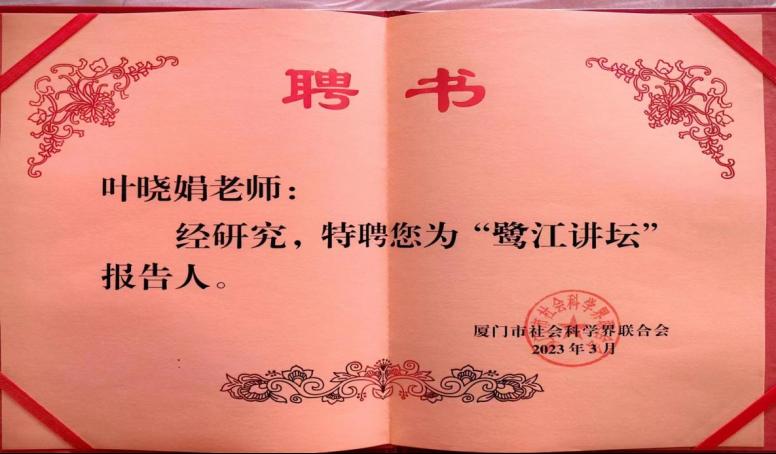 聘书
叶晓娟老师：
经研究，特聘您为“鹭江讲坛”
报告人。
厦门市社会科学界联合会
2023年3月